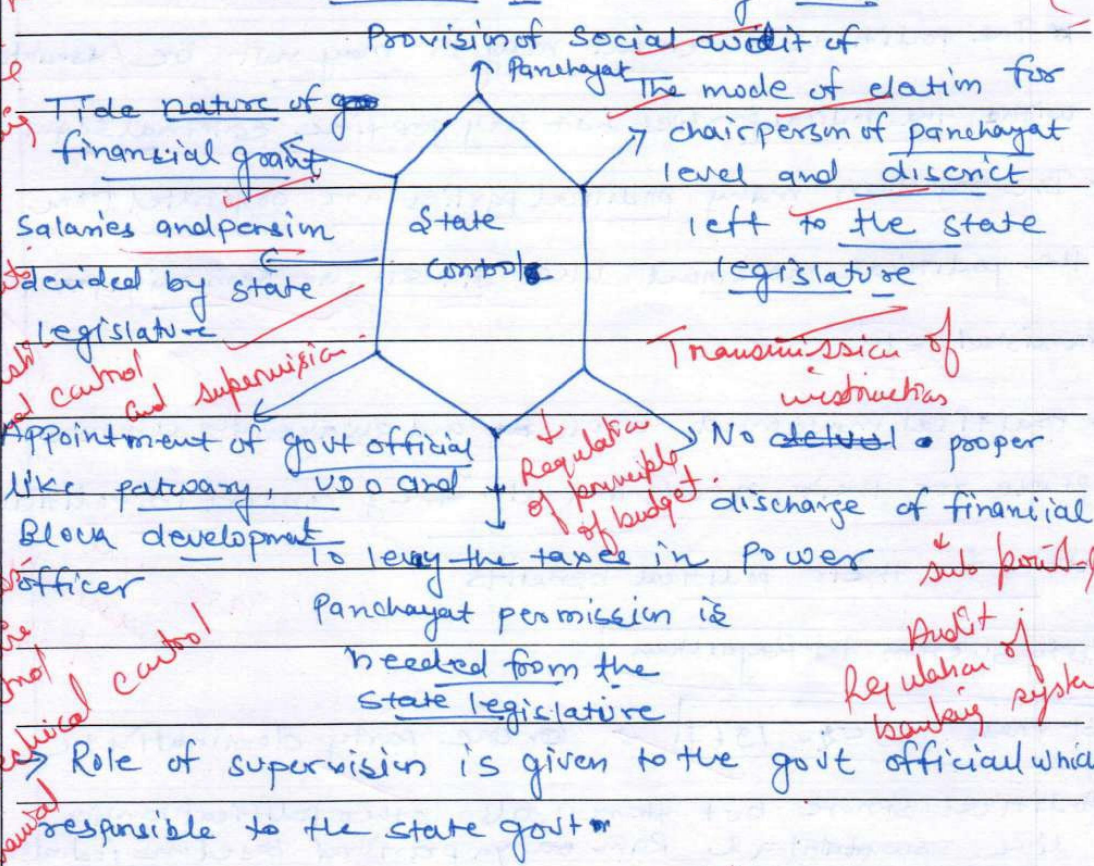 Provision of Social audit of
Panchayat
The mode of elation for
chairperson of panchayat
level and discrict
left to the state
legislature
Tide nature of
financial grant
Salaries and pension
decided by state
legislature
State
control
control
and supervision
Transmission of
instructions
Appointment of govt official
like patwary, VDO and
Block development
officer
Regulation
of principle
of budget
No proper
discharge of finaniial
Power
To levy the taxes in
Panchayat permission is
needed from the
State legislature
Audit
Regulation of
banking syste
control
→ Role of supervision is given to the govt official whic
responsible to the state govt